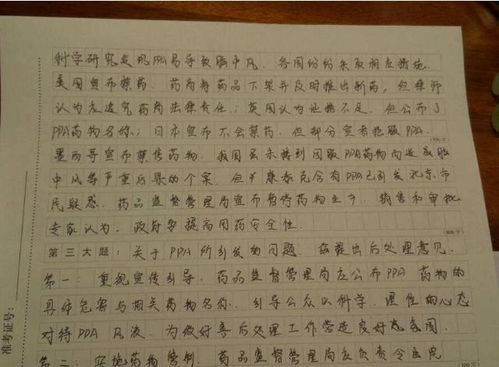 科学研究发现PPA易导致脑中风，各国纷纷采取相应措施。
美国宣布禁药，药商将药品下架并及时推出新药，但律师
认为应追究药商法律责任；英国认为证据不足，但公布了
PPA药物名称；日本宣布不会禁药，但部分宣布抵制PPA；
墨西哥宣布禁售药物。我国虽未接到因服PPA药物而造成脑
中风等严重后果的个案，但康泰克含有PPA已引发北京市
民疑惑。药品监督管理局宣布暂停药物生产、销售和审批
专家认为，政府要提高用药安全性。
第三大题：关于PPA所引发的问题，兹提出后处理意见。
第一：重视宣传引导。药品监督管理局应公布PPA药物的
具体危害与相关药物名称，引导公众以科学、理性的心态
对待PPA风波，为做好善后处理工作营造良好态氛围。
第二：实施药物管制。药品监督管理局应负责令医院
准考证号：